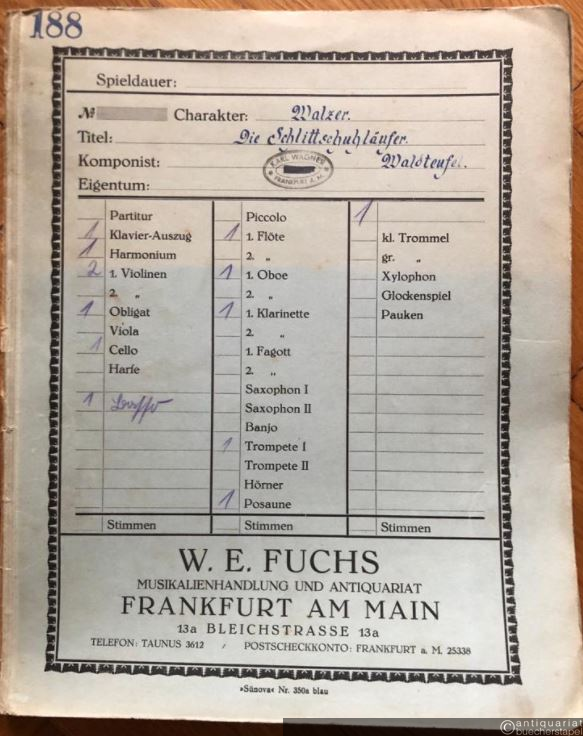 188
Spieldauer:
№ Charakter: Walzer.
Titel: Die Schlittschuhläufer.
Komponist: Waldteufel.
KARL WAGNER
FRANKFURT A. M.
Eigentum:
Partitur
1 Klavier-Auszug
1 Harmonium
2 1. Violinen
2. „
1 Obligat
Viola
1 Cello
Harfe
1
Stimmen
Piccolo
1 1. Flöte
2. „
1 1. Oboe
2. „
1 1. Klarinette
2. „
1. Fagott
2. „
Saxophon I
Saxophon II
Banjo
1 Trompete I
Trompete II
Hörner
1 Posaune
Stimmen
1
kl. Trommel
gr. „
Xylophon
Glockenspiel
Pauken
Stimmen
W. E. FUCHS
MUSIKALIENHANDLUNG UND ANTIQUARIAT
FRANKFURT AM MAIN
13a BLEICHSTRASSE 13a
TELEFON: TAUNUS 3612 / POSTSCHECKKONTO: FRANKFURT a. M. 25338
»Sünova« Nr. 350a blau
©antiquariat
buecherstapel